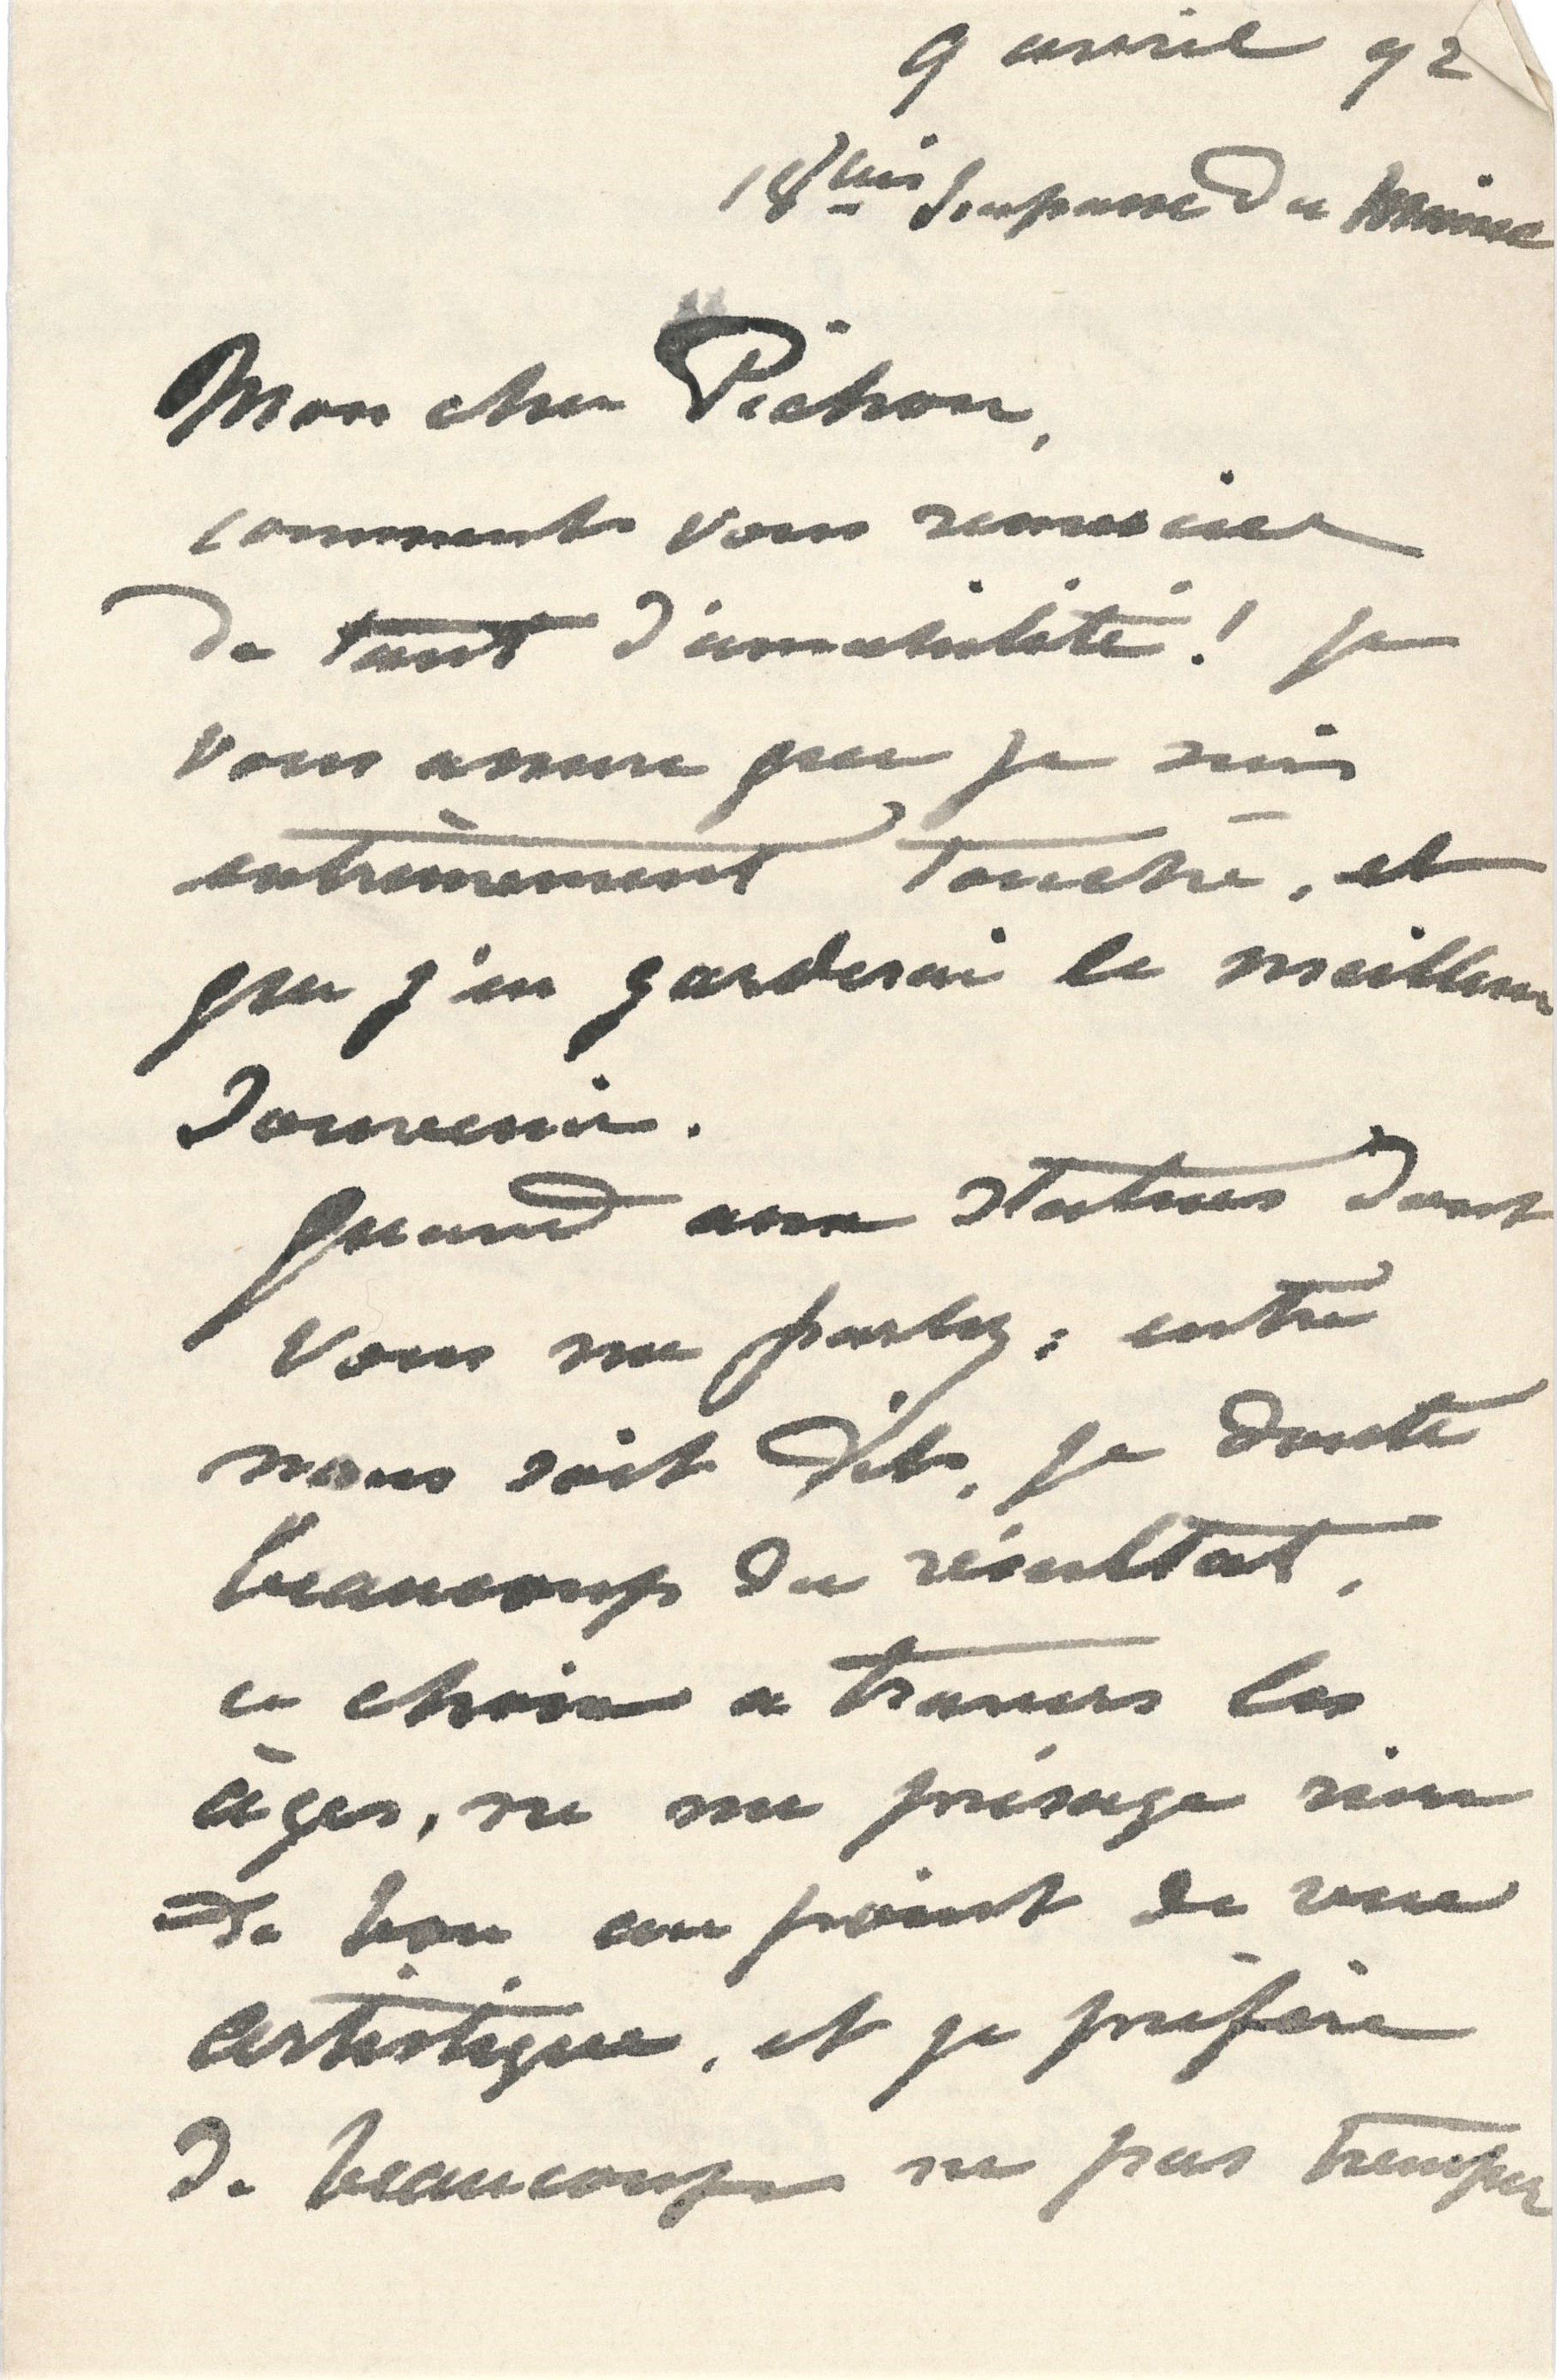 9 avril 92
18bis Impasse du Maine
Mon cher Pichon,
comment vous remercier
de tant d'amabilité! je
vous assure que je suis
extrèmement touché, et
que j'en garderai le meilleur
Souvenir.
Quand aux statues dont
vous me parlez: entre
nous soit dit, je doute
beaucoup du résultat,
ce choix a travers les
âges, ne me présage rien
de bon au point de vue
artistique, et je préfère
de beaucoup ne pas tremper